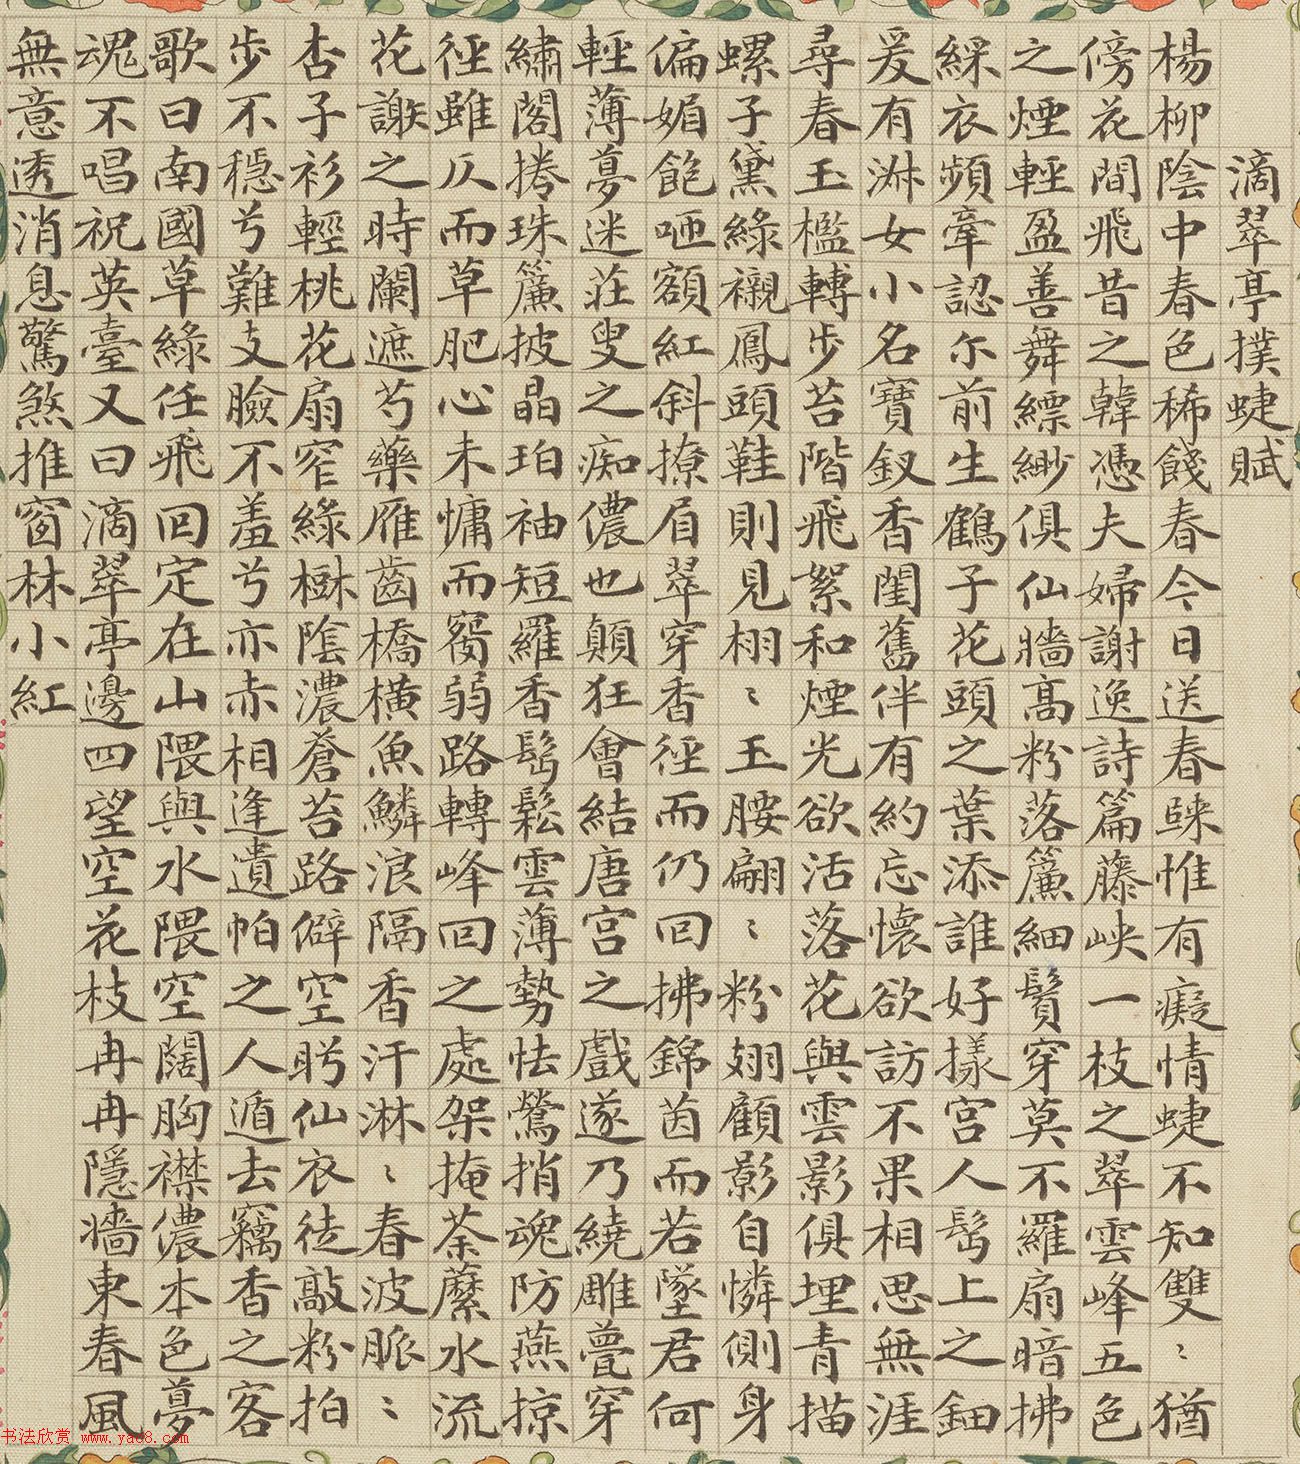 滴翠亭撲蜨賦
楊柳陰中春色稀餞春今日送春歸惟有癡情蜨不知雙〻猶
傍花間飛昔之韓憑夫婦謝逸詩篇藤峽一枝之翠雲峰五色
之煙輕盈善舞縹緲俱仙牆高粉落簾細鬢穿莫不羅扇暗拂
綵衣頻牽認尓前生鶴子花頭之葉添誰好樣宮人髻上之鈿
爰有淋女小名寶釵香閨舊伴有約忘懷欲訪不果相思無涯
尋春玉檻轉步苔階飛絮和煙光欲活落花與雲影俱埋青描
螺子黛綠襯鳳頭鞋則見栩〻玉腰翩〻粉翅顧影自憐側身
偏媚飽咂額紅斜撩眉翠穿香徑而仍回拂錦茵而若墜君何
輕薄夢迷莊叟之痴儂也顛狂會結唐宮之戲遂乃繞雕甍穿
繡閣捲珠簾披晶珀袖短羅香髻鬆雲薄勢怯鶯捎魂防燕掠
徑雖仄而草肥心未慵而鬢弱路轉峰回之處架掩荼蘼水流
花謝之時闌遮芍藥雁齒橋橫魚鱗浪隔香汗淋〻春波脈〻
杏子衫輕桃花扇窄綠樾陰濃蒼苔路僻空眄仙衣徒敲粉拍
步不穩兮難支臉不羞兮亦赤相逢遺帕之人遁去竊香之客
歌曰南國草綠任飛回定在山隈與水隈空闊胸襟儂本色夢
魂不唱祝英臺又曰滴翠亭邊四望空花枝冉冉隱牆東春風
無意透消息驚煞推窗林小紅
书法欣赏 www.yac8.com